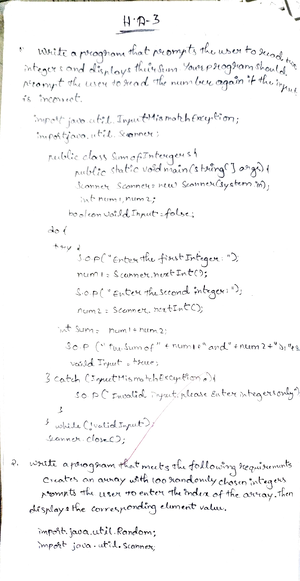 H.A-3
1. Write a program that prompts the user to read two
integers and displays their sum. Your program should
prompt the user to read the number again if the input
is incorrect.
import java.util.InputMismatchException;
import java.util.Scanner;
public class SumofIntergers {
public static void main(String[] args) {
Scanner Scanner = new Scanner(System.in);
int num1, num2;
boolean valid Input = false;
do {
try {
S.O.P("Enter the first Integer: ");
num1 = Scanner.nextInt();
S.O.P("Enter the second integer: ");
num2 = Scanner.nextInt();
int Sum = num1 + num2;
S.O.P ("The Sum of " + num1 + " and " + num2 + "
valid Input = true;
} catch (InputMismatchException e) {
S.O.P("Invalid input, please Enter integers only")
}
} while (!validInput);
Scanner.close();
2. Write a program that meets the following requirements
Creates an array with 100 randomly chosen integers
prompts the user to enter the index of the array. Then
displays the corresponding element value.
import java.util.Random;
import java.util.Scanner;